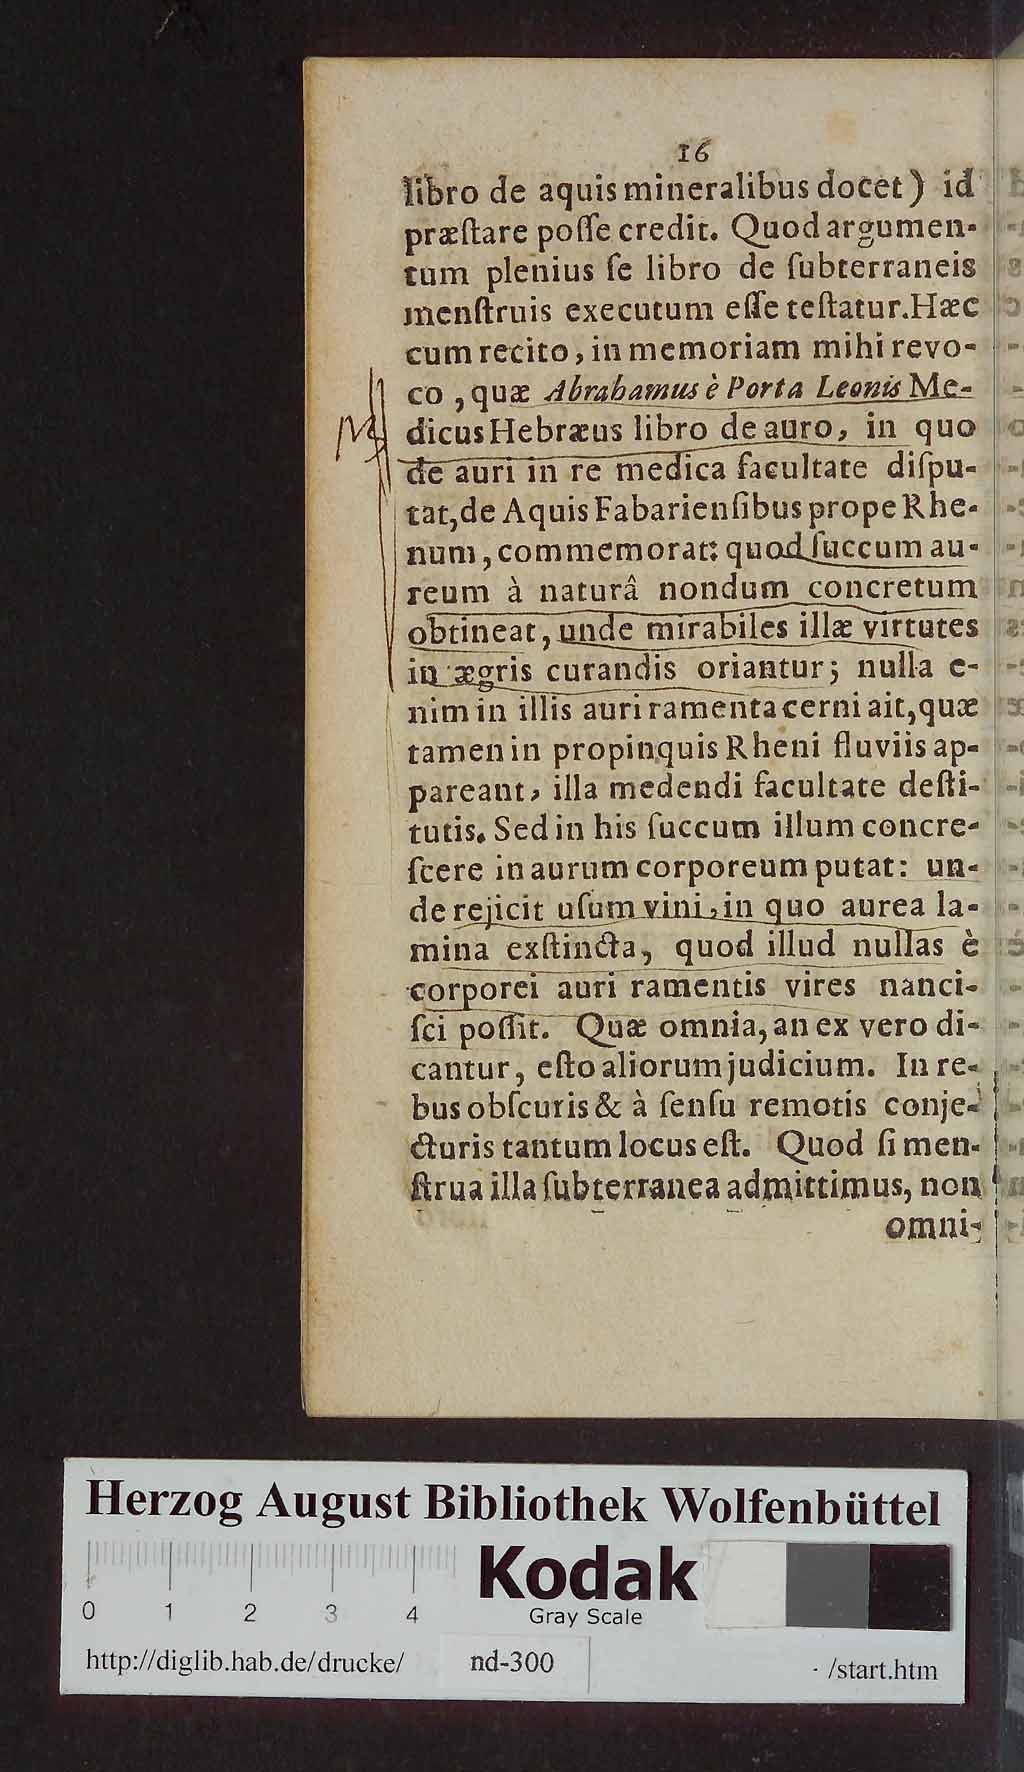 16
libro de aquis mineralibus docet) id
præſtare poſſe credit. Quod argumen-
tum plenius ſe libro de ſubterraneis
menſtruis executum eſſe teſtatur. Hæc
cum recito, in memoriam mihi revo-
co, quæ Abrahamus è Porta Leonis Me-
dicus Hebræus libro de auro, in quo
de auri in re medica facultate diſpu-
tat, de Aquis Fabarienſibus prope Rhe-
num, commemorat: quod ſuccum au-
reum à naturâ nondum concretum
obtineat, unde mirabiles illæ virtutes
in ægris curandis oriantur; nulla e-
nim in illis auri ramenta cerni ait, quæ
tamen in propinquis Rheni fluviis ap-
pareant, illa medendi facultate deſti-
tutis. Sed in his ſuccum illum concre-
ſcere in aurum corporeum putat: un-
de rejicit uſum vini, in quo aurea la-
mina exſtincta, quod illud nullas è
corporei auri ramentis vires nanci-
ſci poſſit. Quæ omnia, an ex vero di-
cantur, eſto aliorum judicium. In re-
bus obſcuris & à ſenſu remotis conje-
cturis tantum locus eſt. Quod ſi men-
ſtrua illa ſubterranea admittimus, non
omni-
Herzog August Bibliothek Wolfenbüttel
0 1 2 3 4
Kodak
Gray Scale
http://diglib.hab.de/drucke/ nd-300 /start.htm